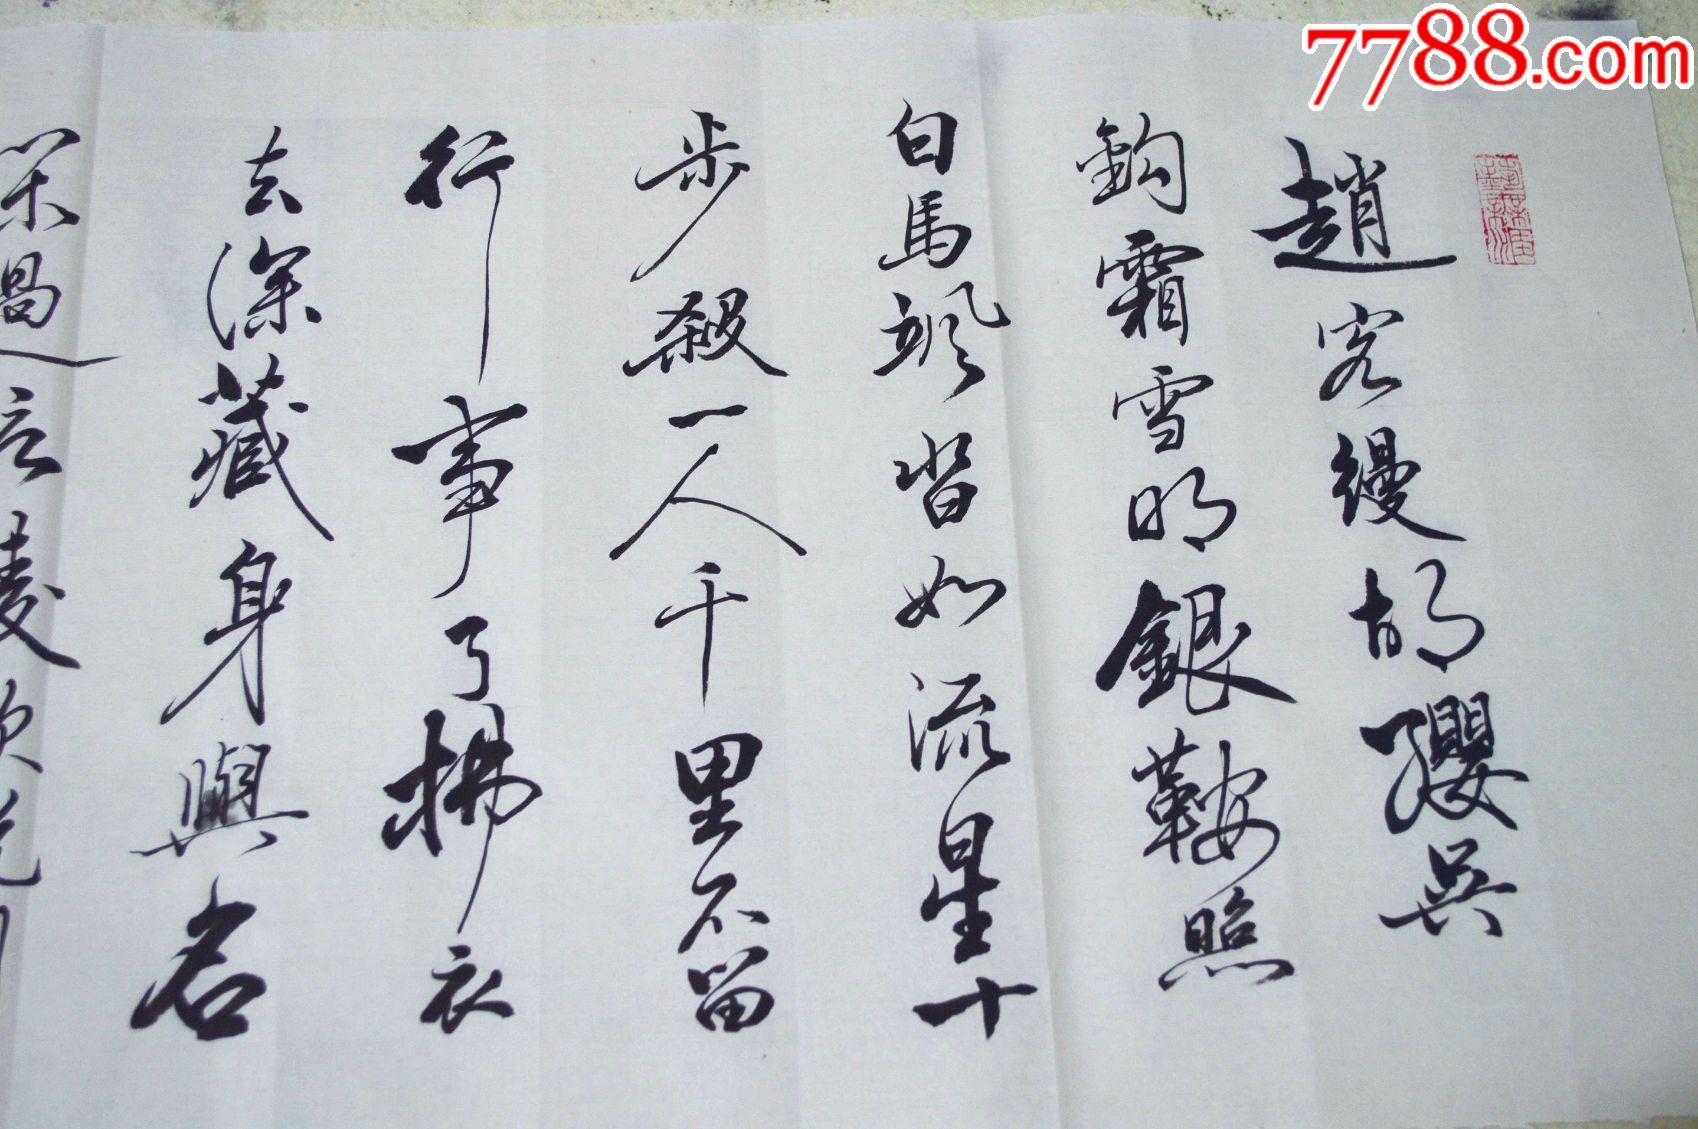 7788.com
趙客縵胡纓吳
鈎霜雪明銀鞍照
白馬颯沓如流星十
步殺一人千里不留
行事了拂衣
去深藏身與名
閑過信陵